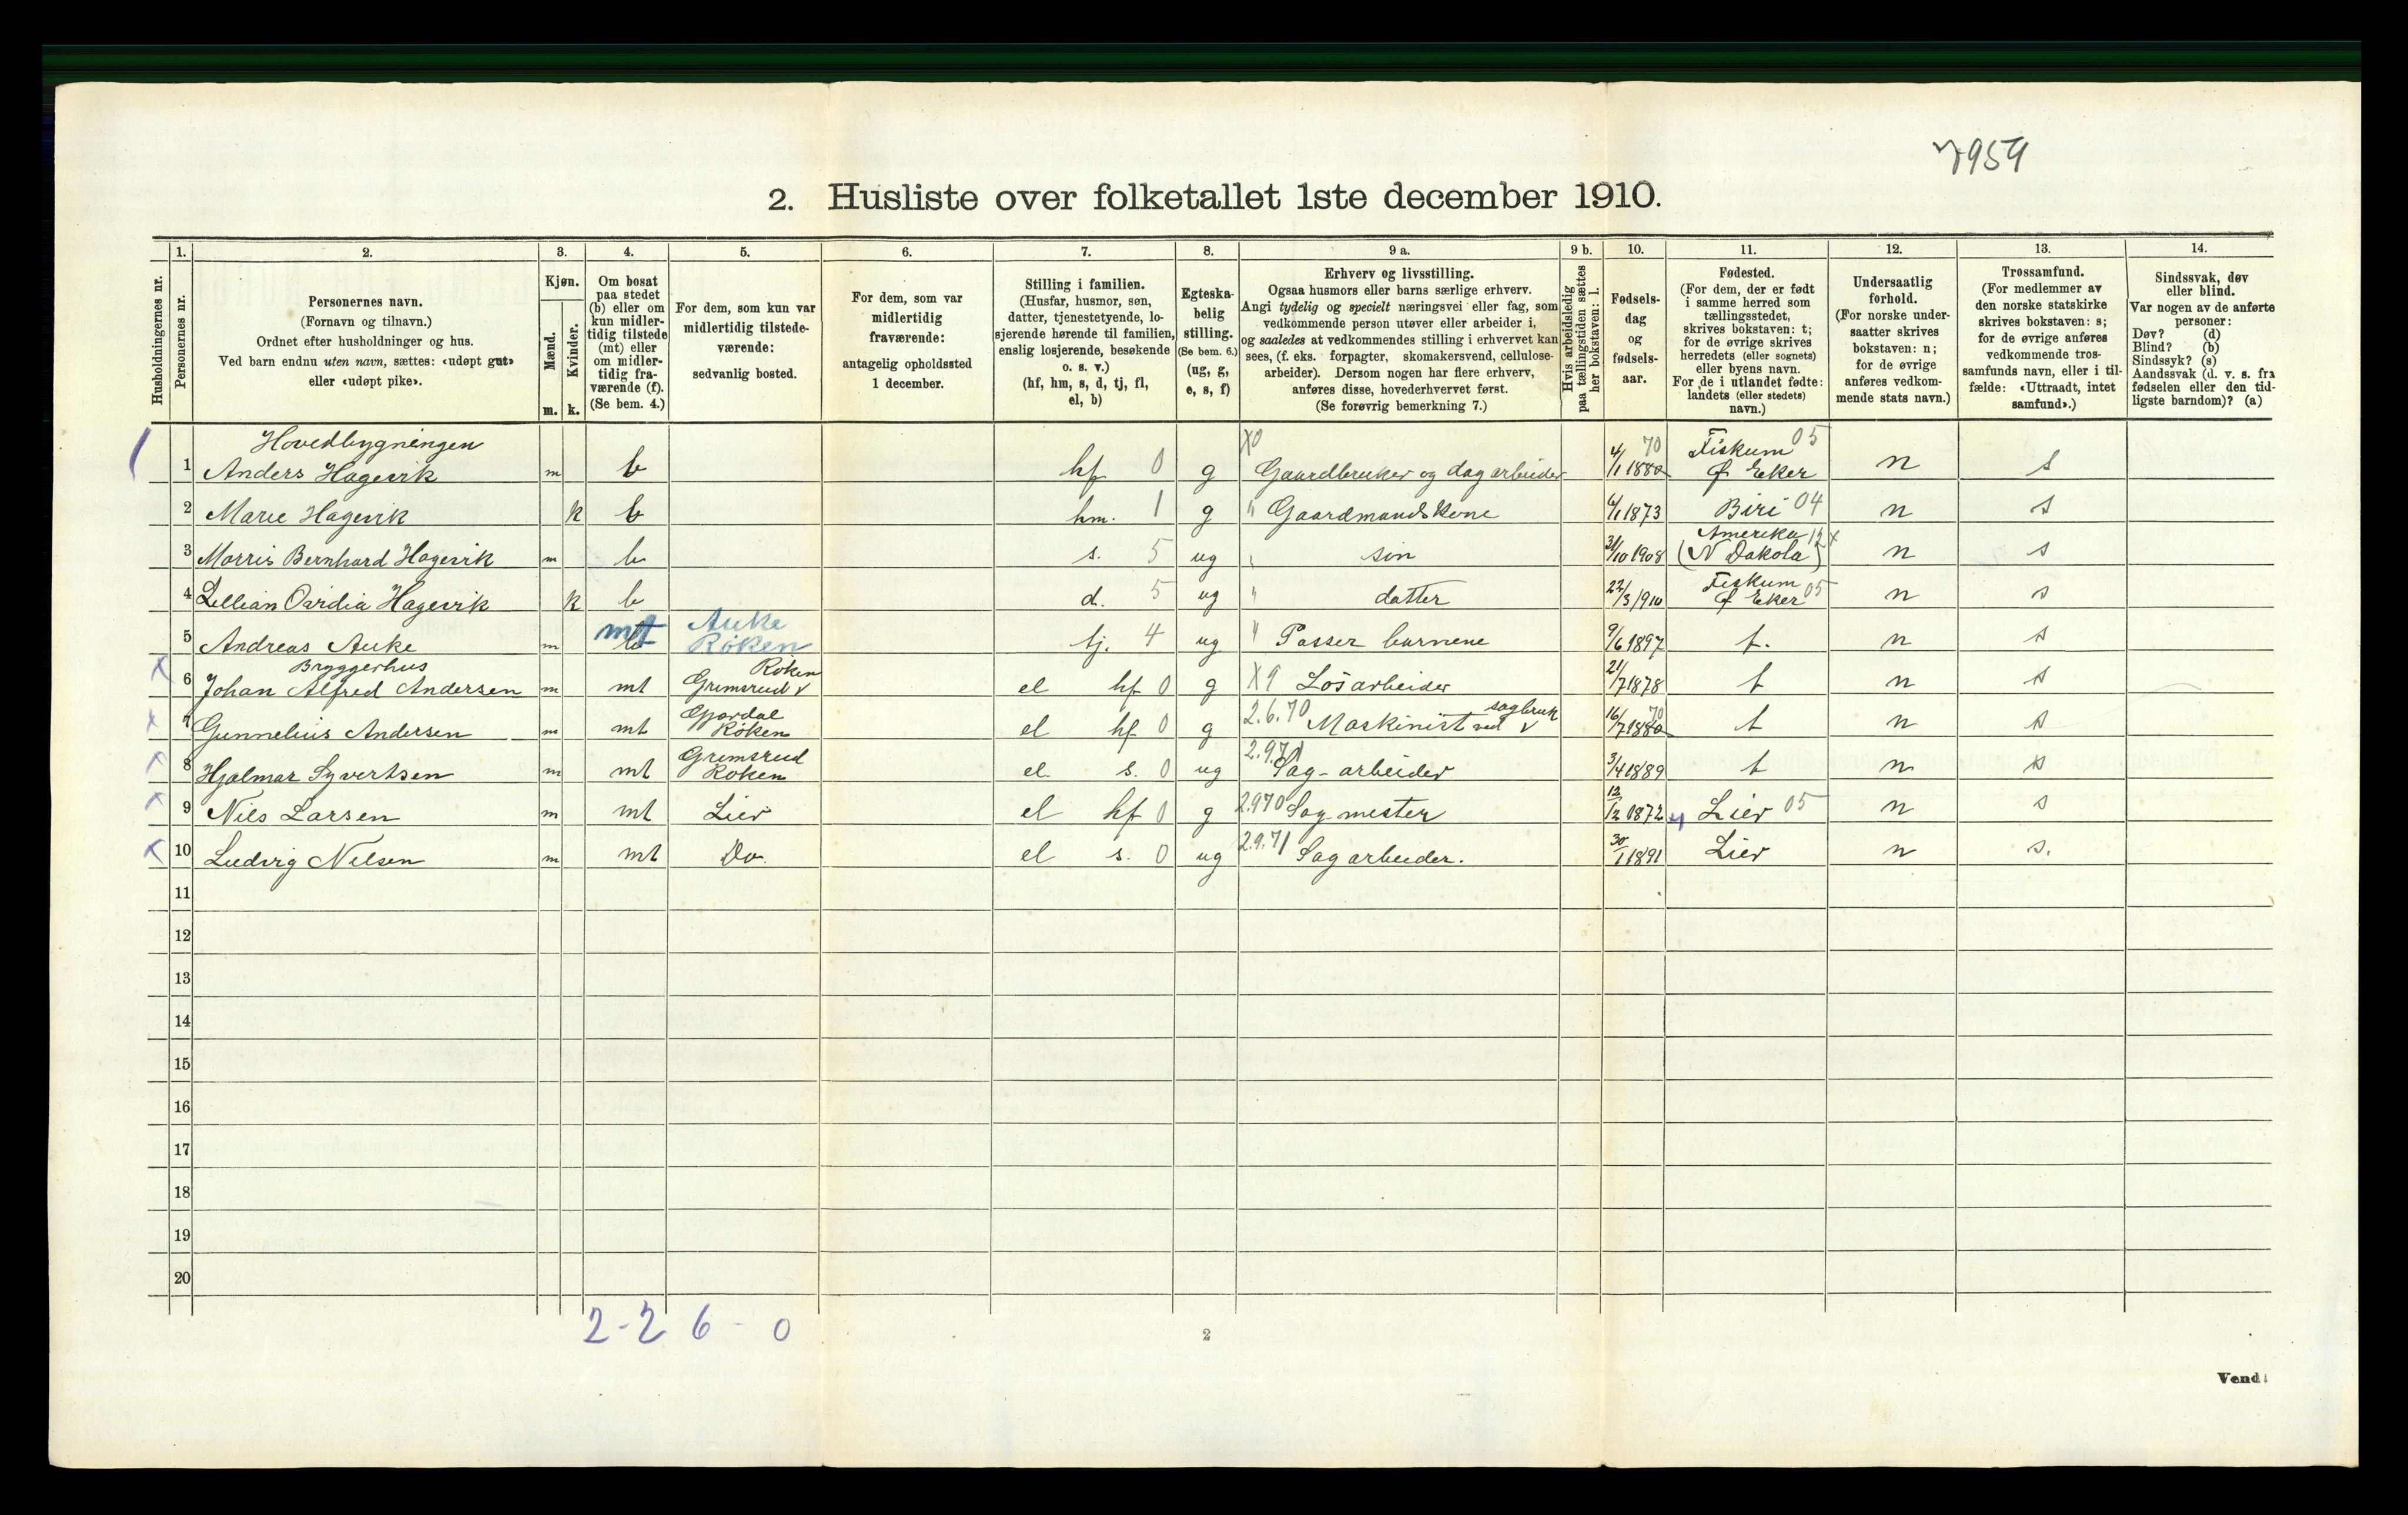 7959
2. Husliste over folketallet 1ste december 1910.
Husholdningernes nr.
1.
Personernes nr.
2.
Personernes navn.
(Fornavn og tilnavn.)
Ordnet efter husholdninger og hus.
Ved barn endnu uten navn, sættes: «udøpt gut»
eller «udøpt pike».
3.
Kjøn.
Mænd.
Kvinder.
m. k.
4.
Om bosat
paa stedet
(b) eller om
kun midler-
tidig tilstede
(mt) eller
om midler-
tidig fra-
værende (f).
(Se bem. 4.)
5.
For dem, som kun var
midlertidig tilstede-
værende:
sedvanlig bosted.
6.
For dem, som var
midlertidig
fraværende:
antagelig opholdssted
1 december.
7.
Stilling i familien.
(Husfar, husmor, søn,
datter, tjenestetyende, lo-
sjerende hørende til familien,
enslig losjerende, besøkende
o. s. v.)
(hf, hm, s, d, tj, fl,
el, b)
8.
Egteska-
belig
stilling.
(Se bem. 6.)
(ug, g,
e, s, f)
9 a.
Erhverv og livsstilling.
Ogsaa husmors eller barns særlige erhverv.
Angi tydelig og specielt næringsvei eller fag, som
vedkommende person utøver eller arbeider i,
og saaledes at vedkommendes stilling i erhvervet kan
sees, (f. eks. forpagter, skomakersvend, cellulose-
arbeider). Dersom nogen har flere erhverv,
anføres disse, hovederhvervet først.
(Se forøvrig bemerkning 7.)
9 b.
Hvis arbeidsledig
paa tællingstiden sættes
her bokstaven: l.
10.
Fødsels-
dag
og
fødsels-
aar.
11.
Fødested.
(For dem, der er født
i samme herred som
tællingsstedet,
skrives bokstaven: t;
for de øvrige skrives
herredets (eller sognets)
eller byens navn.
For de i utlandet fødte:
landets (eller stedets)
navn.)
12.
Undersaatlig
forhold.
(For norske under-
saatter skrives
bokstaven: n;
for de øvrige
anføres vedkom-
mende stats navn.)
13.
Trossamfund.
(For medlemmer av
den norske statskirke
skrives bokstaven: s;
for de øvrige anføres
vedkommende tros-
samfunds navn, eller i til-
fælde: «Uttraadt, intet
samfund».)
14.
Sindssvak, døv
eller blind.
Var nogen av de anførte
personer:
Døv? (d)
Blind? (b)
Sindssyk? (s)
Aandssvak (d. v. s. fra
fødselen eller den tid-
ligste barndom)? (a)
Hovedbygningen X0 70 Fiskum 05
1 Anders Hagevik m b hf 0 g Gaardbruker og dagarbeider 4/1 1880 Ø Eker n s
2 Marie Hagevik k b hm. 1 g " Gaardmandskone 6/1 1873 Biri 04 n s
Amerika 12 x
3 Morris Bernhard Hagevik m b s. 5 ug " søn 31/10 1908 (N Dakola) n s
Fiskum
4 Lillian Ovidia Hagevik k b d. 5 ug " datter 22/3 1910 Ø Eker 05 n s
mt Auke
5 Andreas Auke m b Røken tj. 4 ug " Passer barnene 9/6 1897 t. n s
Bryggerhus Røken
6 Johan Alfred Andersen m mt Grimsrud v el hf 0 g X9 Løsarbeider 21/7 1878 t n s
Gjørdal 2.6.70 sagbruk 70
7 Gunnelius Andersen m mt Røken el hf 0 g Maskinist ved v 16/7 1880 t n s
Grimsrud 2.9.71
8 Hjalmar Syvertsen m mt Røken el. s. 0 ug Sag-arbeider 3/4 1889 t n s
9 Nils Larsen m mt Lier el hf 0 g 2.970 Sagmester 12/12 1872 Lier 05 n s
10 Ludvig Nilsen m mt Do. el s. 0 ug 2.9.71 Sagarbeider. 30/1 1891 Lier n s.
11
12
13
14
15
16
17
18
19
20
2 - 2 6 - 0
2
Vend!